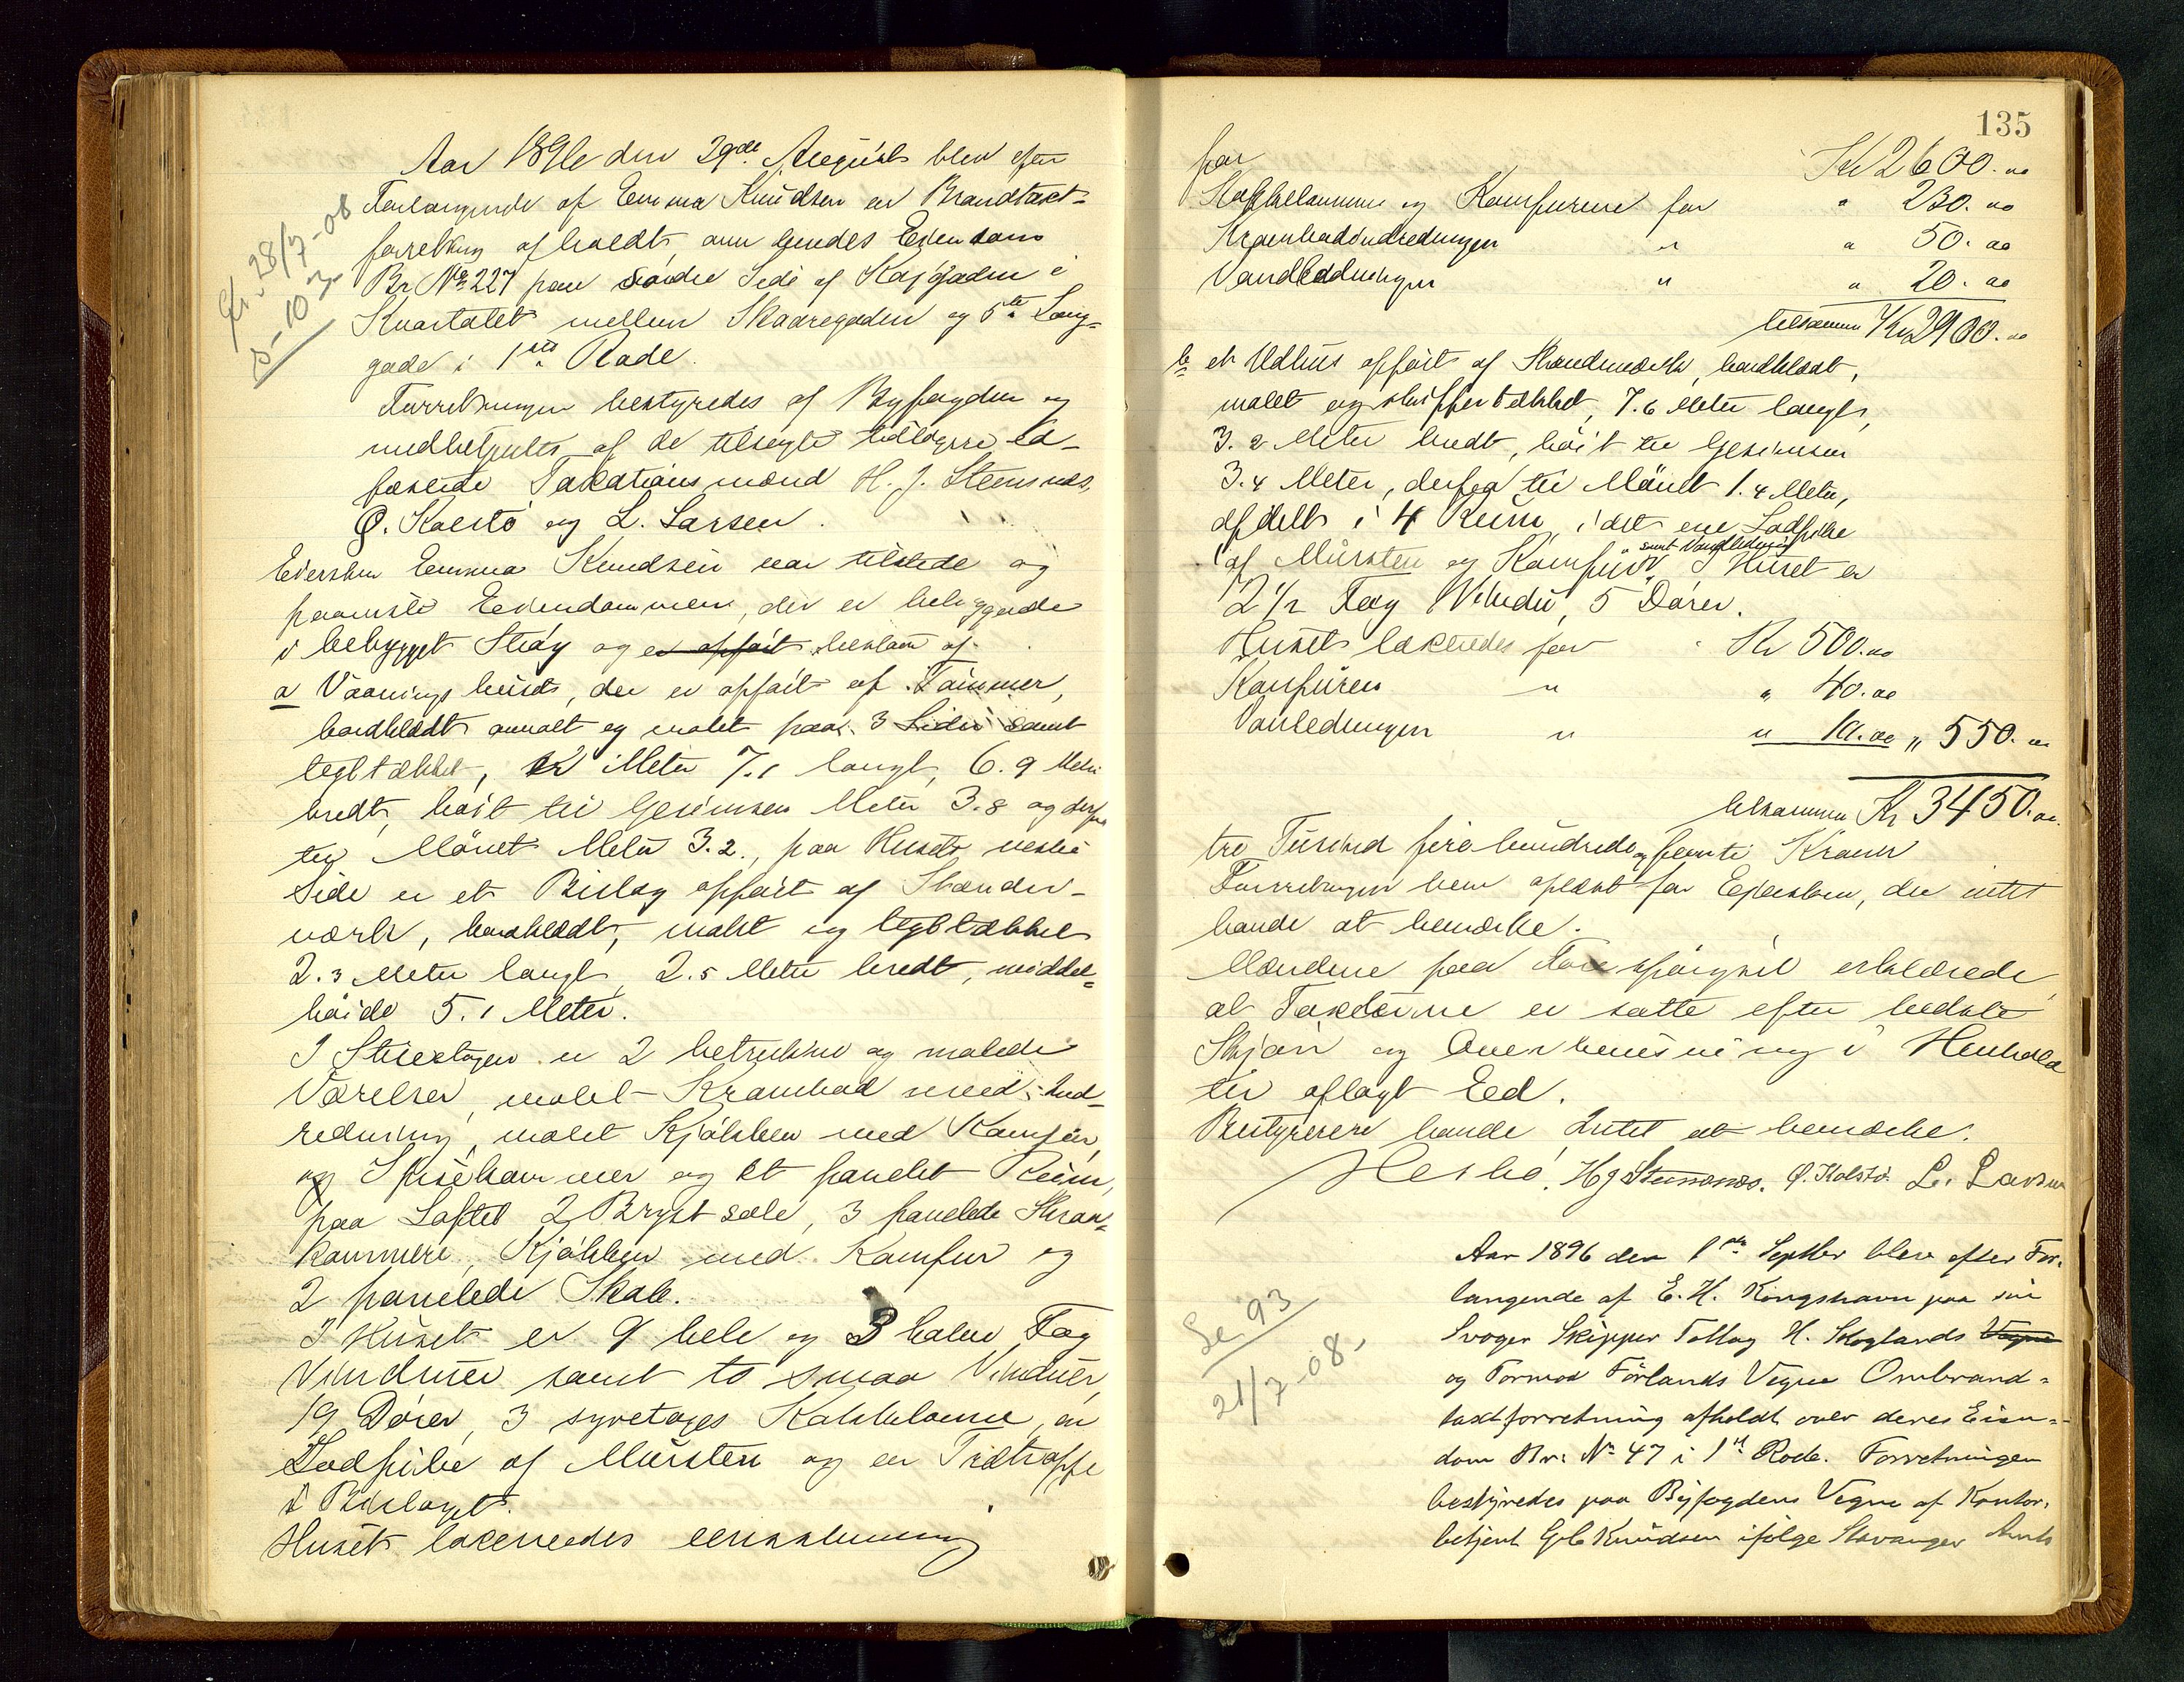 Aar 1896 den 29de August blev efter
Forlangende af Emma Knudsen en Brandtaxt-
forretning afholdt over hendes Eiendom
Br No 227 paa søndre Side af Kajgaden i
Kvartalet mellem Skaaregaden og 5te Lang-
gade i 1ste Rode.
Forretningen bestyredes af Byfogden og
medbetjentes af de tilsagte tidligere ed-
fæstede Taxationsmænd H. J. Stensnæs,
Ø. Kolstø og L. Larsen.
Eiersken Emma Knudsen var tilstede og
paaviste Eiendommen, der er beliggende
i bebygget Strøg og er opført bestaar af
a Vaaningshuset, der er opført af Tømmer,
bordklædt omalt og malet paa 3 Sider samt
tegltækket, er Meter 7.1 langt, 6.9 Meter
bredt, høit til Gesimsen Meter 3.8 og derfra
til Mønet Meter 3.2., paa Husets vestre
Side er et Bislag opført af Skænder-
værk, bordklædt, malet og tegltækket
2.3 Meter langt, 2.5 Meter bredt, middel-
høide 5.1 Meter.
I Stueetagen er 2 betrukne og malede
Værelser, malet Krambod med Ind-
redning, malet Kjøkken med Komfur,
og Spisekammer og et panelet Rum,
paa Loftet 2 Brystsale, 3 panelede Skraa-
kammere, Kjøkken med Komfur og
2 panelede Skab.
I Huset er 9 hele og 3 halve Fag
Vinduer samt to smaa Vinduer,
19 Døre, 3 syvetages Kakkelovne, en
Lodpibe af Mursten og en Tredtrappe
i Bislaget.
Huset taxeredes eenstemmig
Fr. 28/7-08
S-10
135
for Kr 2600.00
Kakkelovnene og Komfurene for " 230.00
Krambodindredningen " " 50.00
Vandledningen " " 20.00
tilsammen Kr 2900.00
b et Udhus opført af Skændværk, bordklædt,
malet og skiffertækket, 7.6 Meter langt,
3.2 Meter bredt, høit til Gesimsen
3.4 Meter, derfra til Mønet 1.4 Meter,
afdelt i 4 Rum, i det ene Lodpibe
samt Vandledning
af Mursten og Komfur. I Huset er
2 1/2 Fag Vindu, 5 Dører.
Huset taxeredes for Kr 500.00
Komfuren " " 40.00
Vanledningen " " 10.00 " 550.00
tilsammen Kr 3450.00
tre Tusind firehundrede og femti Kroner
Forretningen blev oplæst for Eiersken, der intet
havde at bemærke.
Mændene paa Forespørgsel erklærede
at Taxterne er satte efter bedste
Skjøn og Overbevisning i Henhold
til aflagt Eed.
Bestyreren havde Intet at bemærke.
H J Stensnæs. Ø. Kolstø L. Larsen
Aar 1896 den 1ste Septbr blev efter For-
langende af E. H. Kongshavn paa sin
Svoger Skipper Tollag H. Skoglands Vegne
og Tormod Førlands Vegne Ombrand-
taxtforretning afholdt over deres Eien-
dom Br. No 47 i 1ste Rode. Forretningen
bestyredes paa Byfogdens Vegne af Kontor-
betjent Knudsen ifølge Stavanger Amts
Se 93
21/7-08.